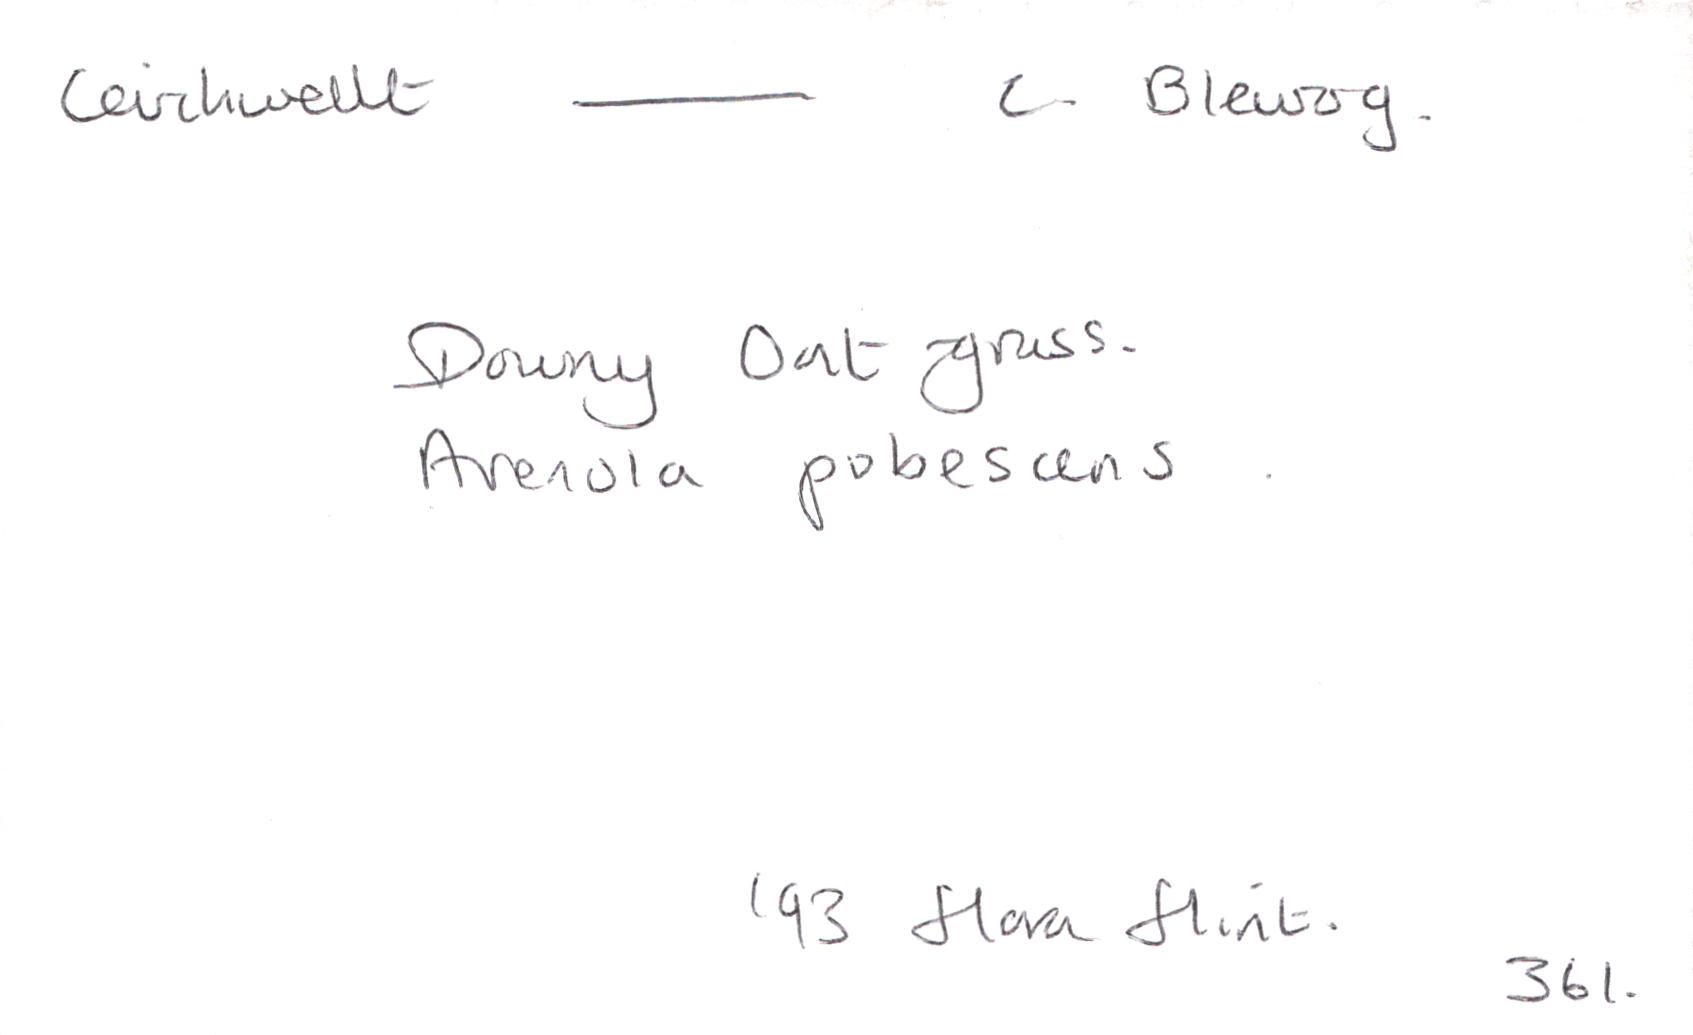 Ceirchwellt — C. Blewog.
Downy Oat grass.
Avenula pubescens.
'93 Flora Flint.
361.